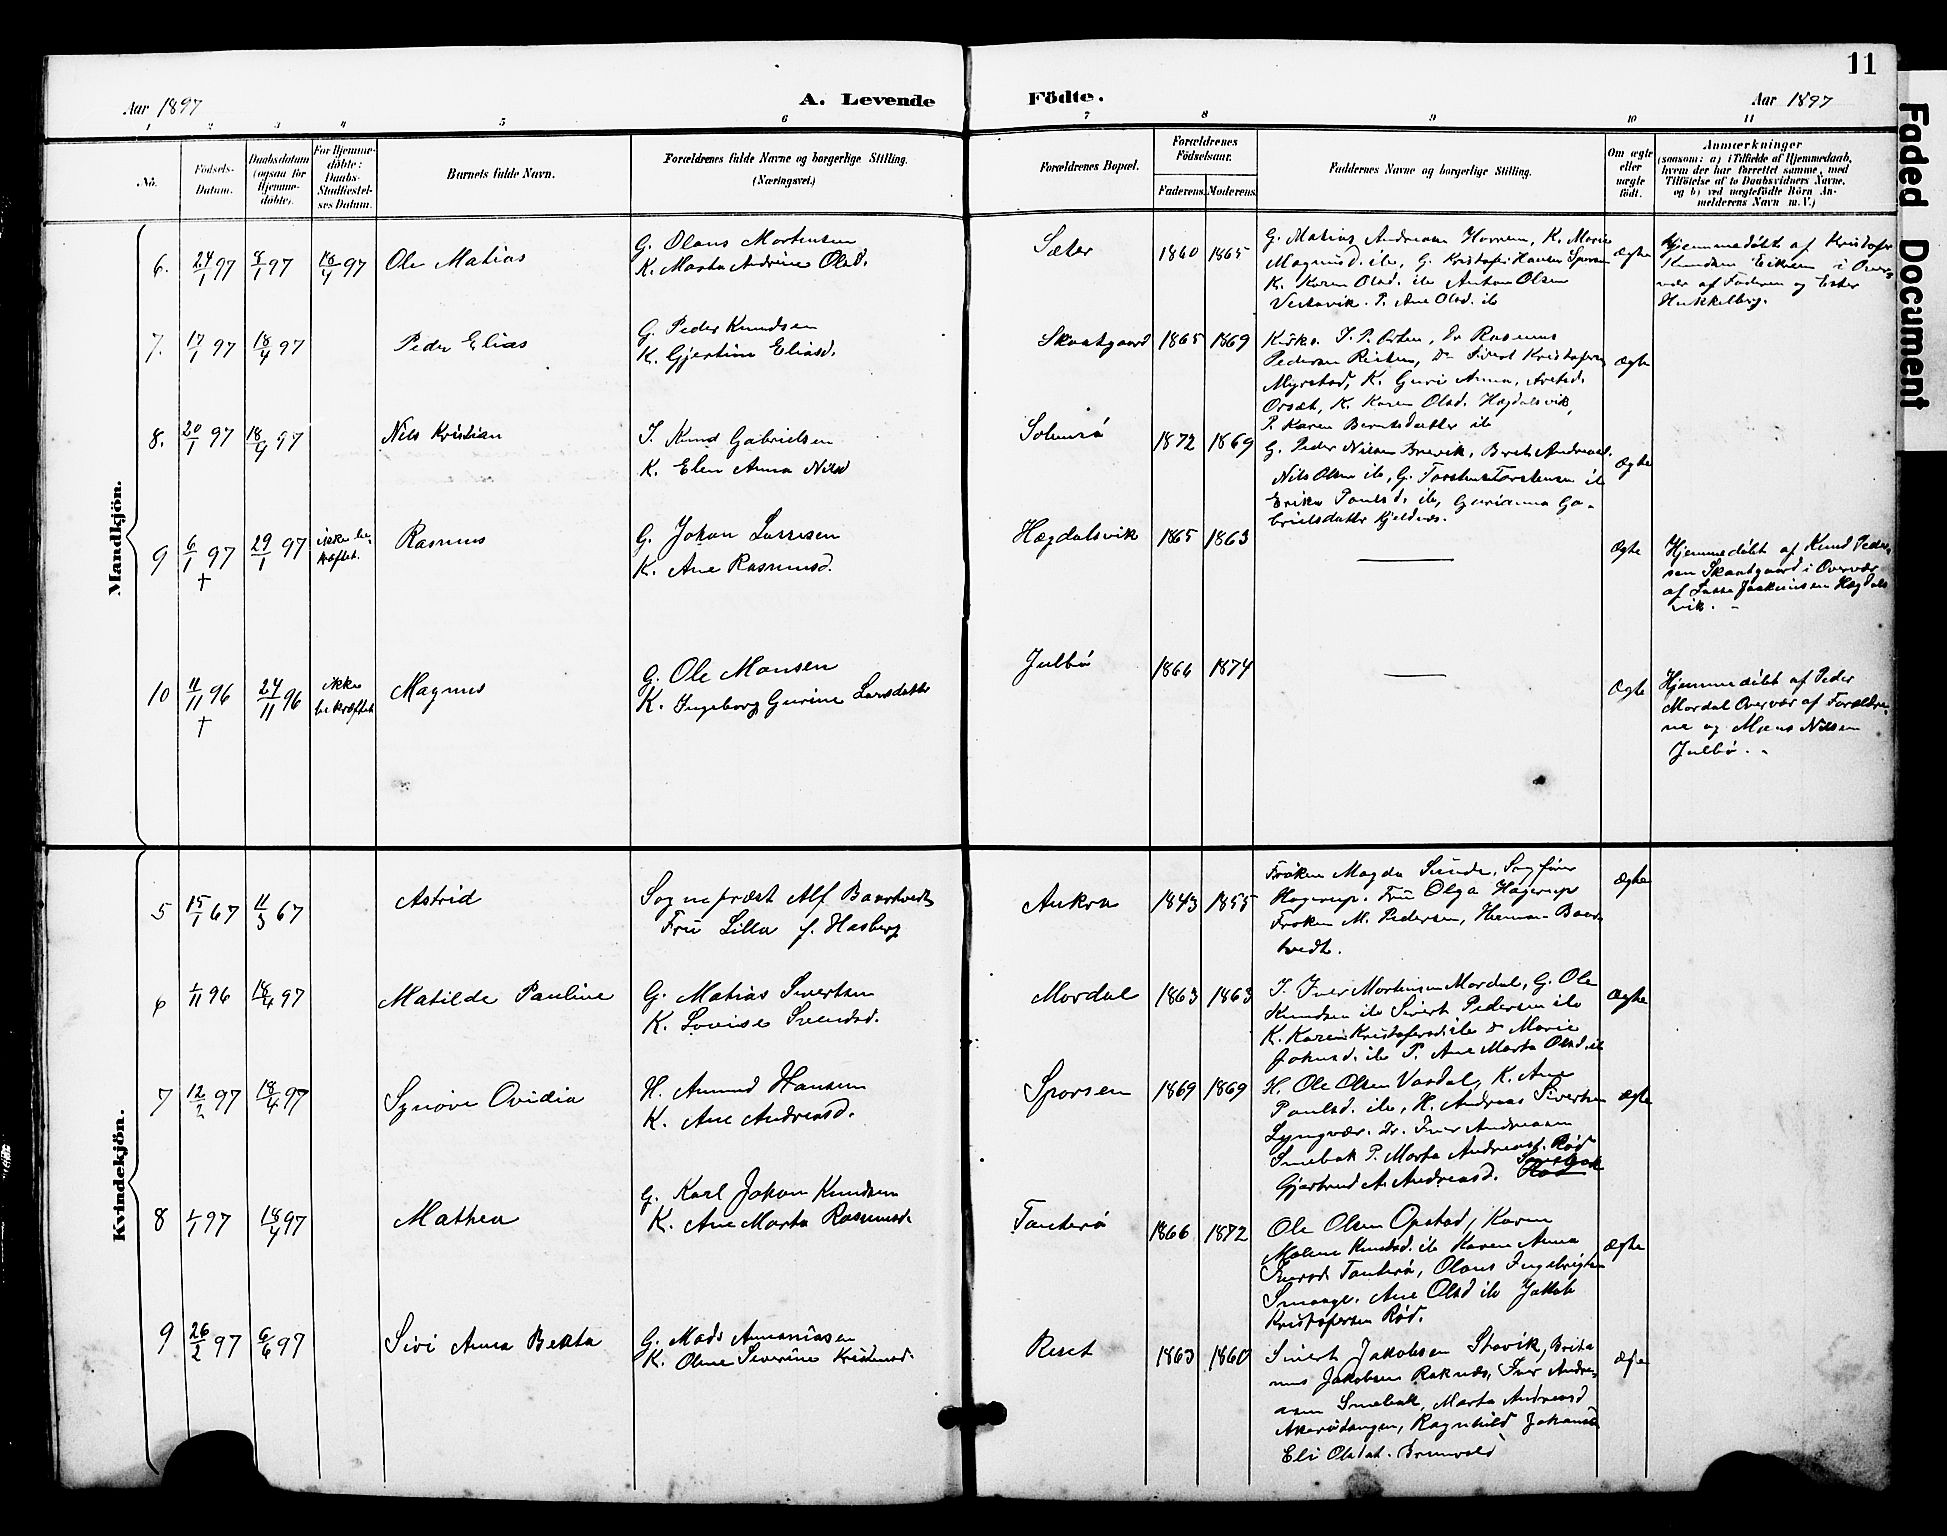 11
Aar 1897
A. Levende Födte.
Aar 1897
1 2 3 4 5 6 7 8 9 10 11
No.
Födsels-
Datum.
Daabsdatum
(ogsaa for
Hjemme-
döbte).
For Hjemme-
döbte:
Daabs-
Stadfæstel-
ses Datum.
Barnets fulde Navn.
Forældrenes fulde Navne og borgerlige Stilling.
(Næringsvei.)
Forældrenes Bopæl.
Forældrenes
Födselsaar.
Faderens.
Moderens.
Faddernes Navne og borgerlige Stilling.
Om ægte
eller
uægte
födt.
Anmærkninger
(saasom: a) i Tilfælde af Hjemmedaab,
hvem der har forrettet samme, med
Tilföielse af to Daabsvidners Navne,
og b) ved uægtefödte Börn An-
melderens Navn m. V.)
Faded Document
Mandkjön.
6. 24/1 97 8/1 97 18/4 97 Ole Matias
G. Olaus Mortensen
K. Marta Andrine Olsd.
Sæter 1860 1865
G. Matias Andreasen Horrem, K. Marie
Magnusd. ib., G. Kristofer Hansen Sporsem
K. Karen Olsd. ib Anton Olsen
Vestavik. P. Ane Olsd. ib
Ægte
Hjemmedöbt af Kristofer
Knudsen Eikrem i Over-
vær af Faderen og Ester
Hukkelberg.
7. 17/1 97 18/4 97 Peder Elias
G. Peder Knudsen
K. Gjertine Eliasd.
Skaatgaard 1865 1869
Kirks. J. P. Orten, Dr Rasmus
Pedersen Risten, Dr Sivert Kristofersen
Myrstad, K. Guri Anna Aretsd.
Orsæt, K. Karen Olsd. Hægdalsvik,
P. Karen Berntsdatter ib
ægte
8. 20/1 97 18/4 97 Nils Kristian
I. Knud Gabrielsen
K. Elen Anna Nilsd
Solemsö 1872 1869
G. Peder Nilsen Brevik, Brit Andreasd.
Nils Olsen ib, G. Torsten Torstensen ib
Erika Paulsd. ib, Gurianna Ga-
brielsdatter Kjeldnes.
Ægte
9 6/1 97 † 29/1 97 ikke be-
kræftet. Rasmus
G. Johan Larssen
K. Ane Rasmusd.
Hægdalsvik 1865 1863
Ægte
Hjemmedöbt af Knud Peder-
sen Skaatgaard i Overvær
af Lasse Joakimsen Hægdals
vik.
10 11/11 96 † 24/11 96 ikke
bekræftet Magnus
G. Ole Monsen
K. Ingeborg Gurine Larsdatter
Julbö 1866 1874
Ægte
Hjemmedöbt af Peder
Mordal Overvær af Forældre-
ne og Mons Nilsen
Julbö.
Kvindekjön.
5 15/1 67 11/3 67 Astrid
Sognepræst Alf Baarkvedt
Frü Lilla f. Hasberg
Aukra 1843 1855
Fröken Magda Sunde, Sagförer
Hagerup. Frü Olga Hagerup
Fröken M. Pedersen, Herman Baar
tvedt.
Ægte
6 1/11 96 18/4 97 Matilde Pauline
G. Matias Sivertsen
K. Lovise Svendsd.
Mordal 1863 1863
I. Iver Mortensen Mordal, G. Ole
Knudsen ib Sivert Pedersen ib
K. Karen Kristofersd ib & Marie
Johnsd. ib P. Ane Marta Olsd. ib
Ægte
7 12/2 97 18/4 97 Synöve Ovidia
H. Amund Hansen
K. Ane Andreasd.
Sporsem 1869 1869
H. Ole Olsen Vardal, K. Ane
Paulsd. ib, H. Andreas Sivertsen
Lyngvær. Dr. Iver Andreasen
Smebak P. Marta Andreasd. Röd
Gjertrud A. Andreasd. Smebak
ægte
8 1/1 97 18/4 97 Mathea
G. Karl Johan Knudsen
K. Ane Marta Rasmusd.
Tanterö 1866 1872
Ole Olsen Opstad, Karen
Malene Knudsd. ib Karen Anna
Tanterö, Olaus Ingebrigtsen
Smaage. Ane Olsd ib Jakob
Kristofersen Röd.
ægte
9 26/2 97 6/6 97 Sivi Anna Bekta
G. Mads Ananiasen
K. Oline Severine Kristensd.
Reset 1863 1860
Sivert Jakobsen Stavik, Brita
Jakobsen Raknæs, Iver Andre-
asen Smebak, Marta Andreasd
Akerötangen, Ragnhild Johansd
Eli Olsdat. Brunvold
ægte